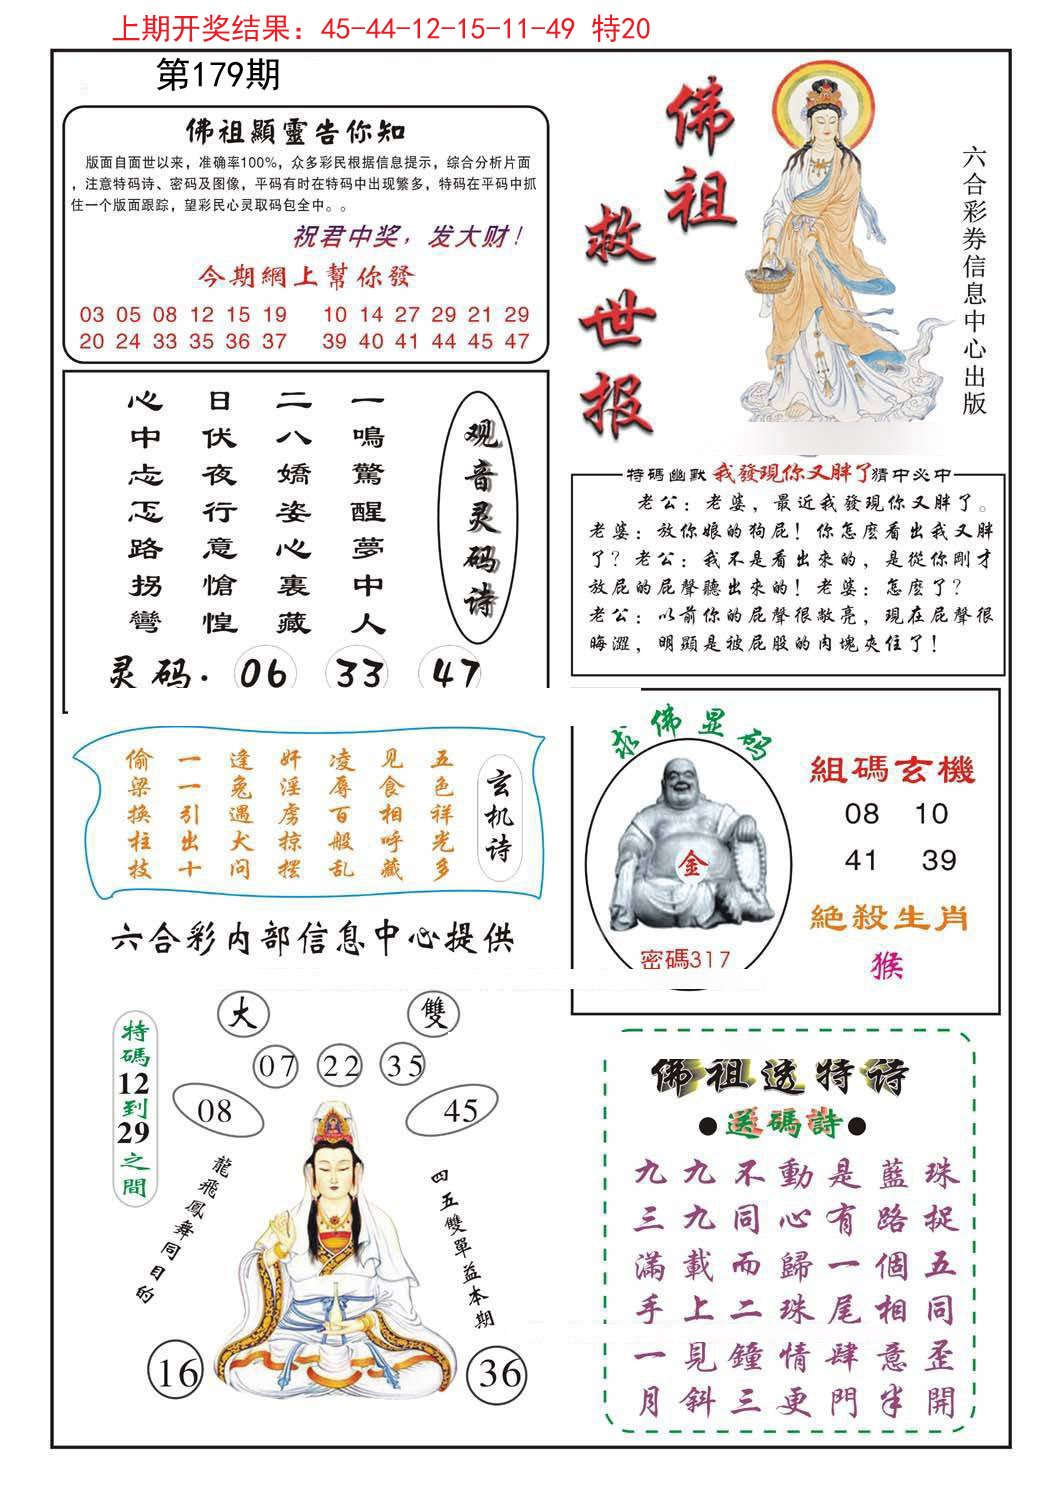 上期开奖结果：45-44-12-15-11-49 特20
第179期
佛祖顯靈告你知
版面自面世以来，准确率100%，众多彩民根据信息提示，综合分析片面
，注意特码诗、密码及图像，平码有时在特码中出现繁多，特码在平码中抓
住一个版面跟踪，望彩民心灵取码包全中。。
祝君中奖，发大财！
今期網上幫你發
03 05 08 12 15 19 10 14 27 29 21 29
20 24 33 35 36 37 39 40 41 44 45 47
佛祖
救世报
六合彩券信息中心出版
观音灵码诗
一鳴驚醒夢中人
二八嬌姿心裏藏
日伏夜行意愴惶
心中忐忑路拐彎
灵码. 06 33 47
特碼幽默 我發現你又胖了 猜中必中
老公：老婆，最近我發現你又胖了。
老婆：放你娘的狗屁！你怎麽看出我又胖
了？老公：我不是看出來的，是從你剛才
放屁的屁聲聽出來的！老婆：怎麽了？
老公：以前你的屁聲很敞亮，現在屁聲很
晦澀，明顯是被屁股的肉塊夾住了！
玄机诗
五色祥光多
见食相呼藏
凌辱百般乱
奸淫虏掠摆
逢兔遇犬问
一一引出十
偷梁换柱技
六合彩内部信息中心提供
求佛显码
金
密碼317
組碼玄機
08 10
41 39
絕殺生肖
猴
特碼12到29之間
大 雙
07 22 35
08 45
龍飛鳳舞同目的
四五雙單益本期
16 36
佛祖透特诗
●送碼詩●
九九不動是藍珠
三九同心有路捉
滿載而歸一個五
手上二珠尾相同
一見鐘情肆意歪
月斜三更門半開